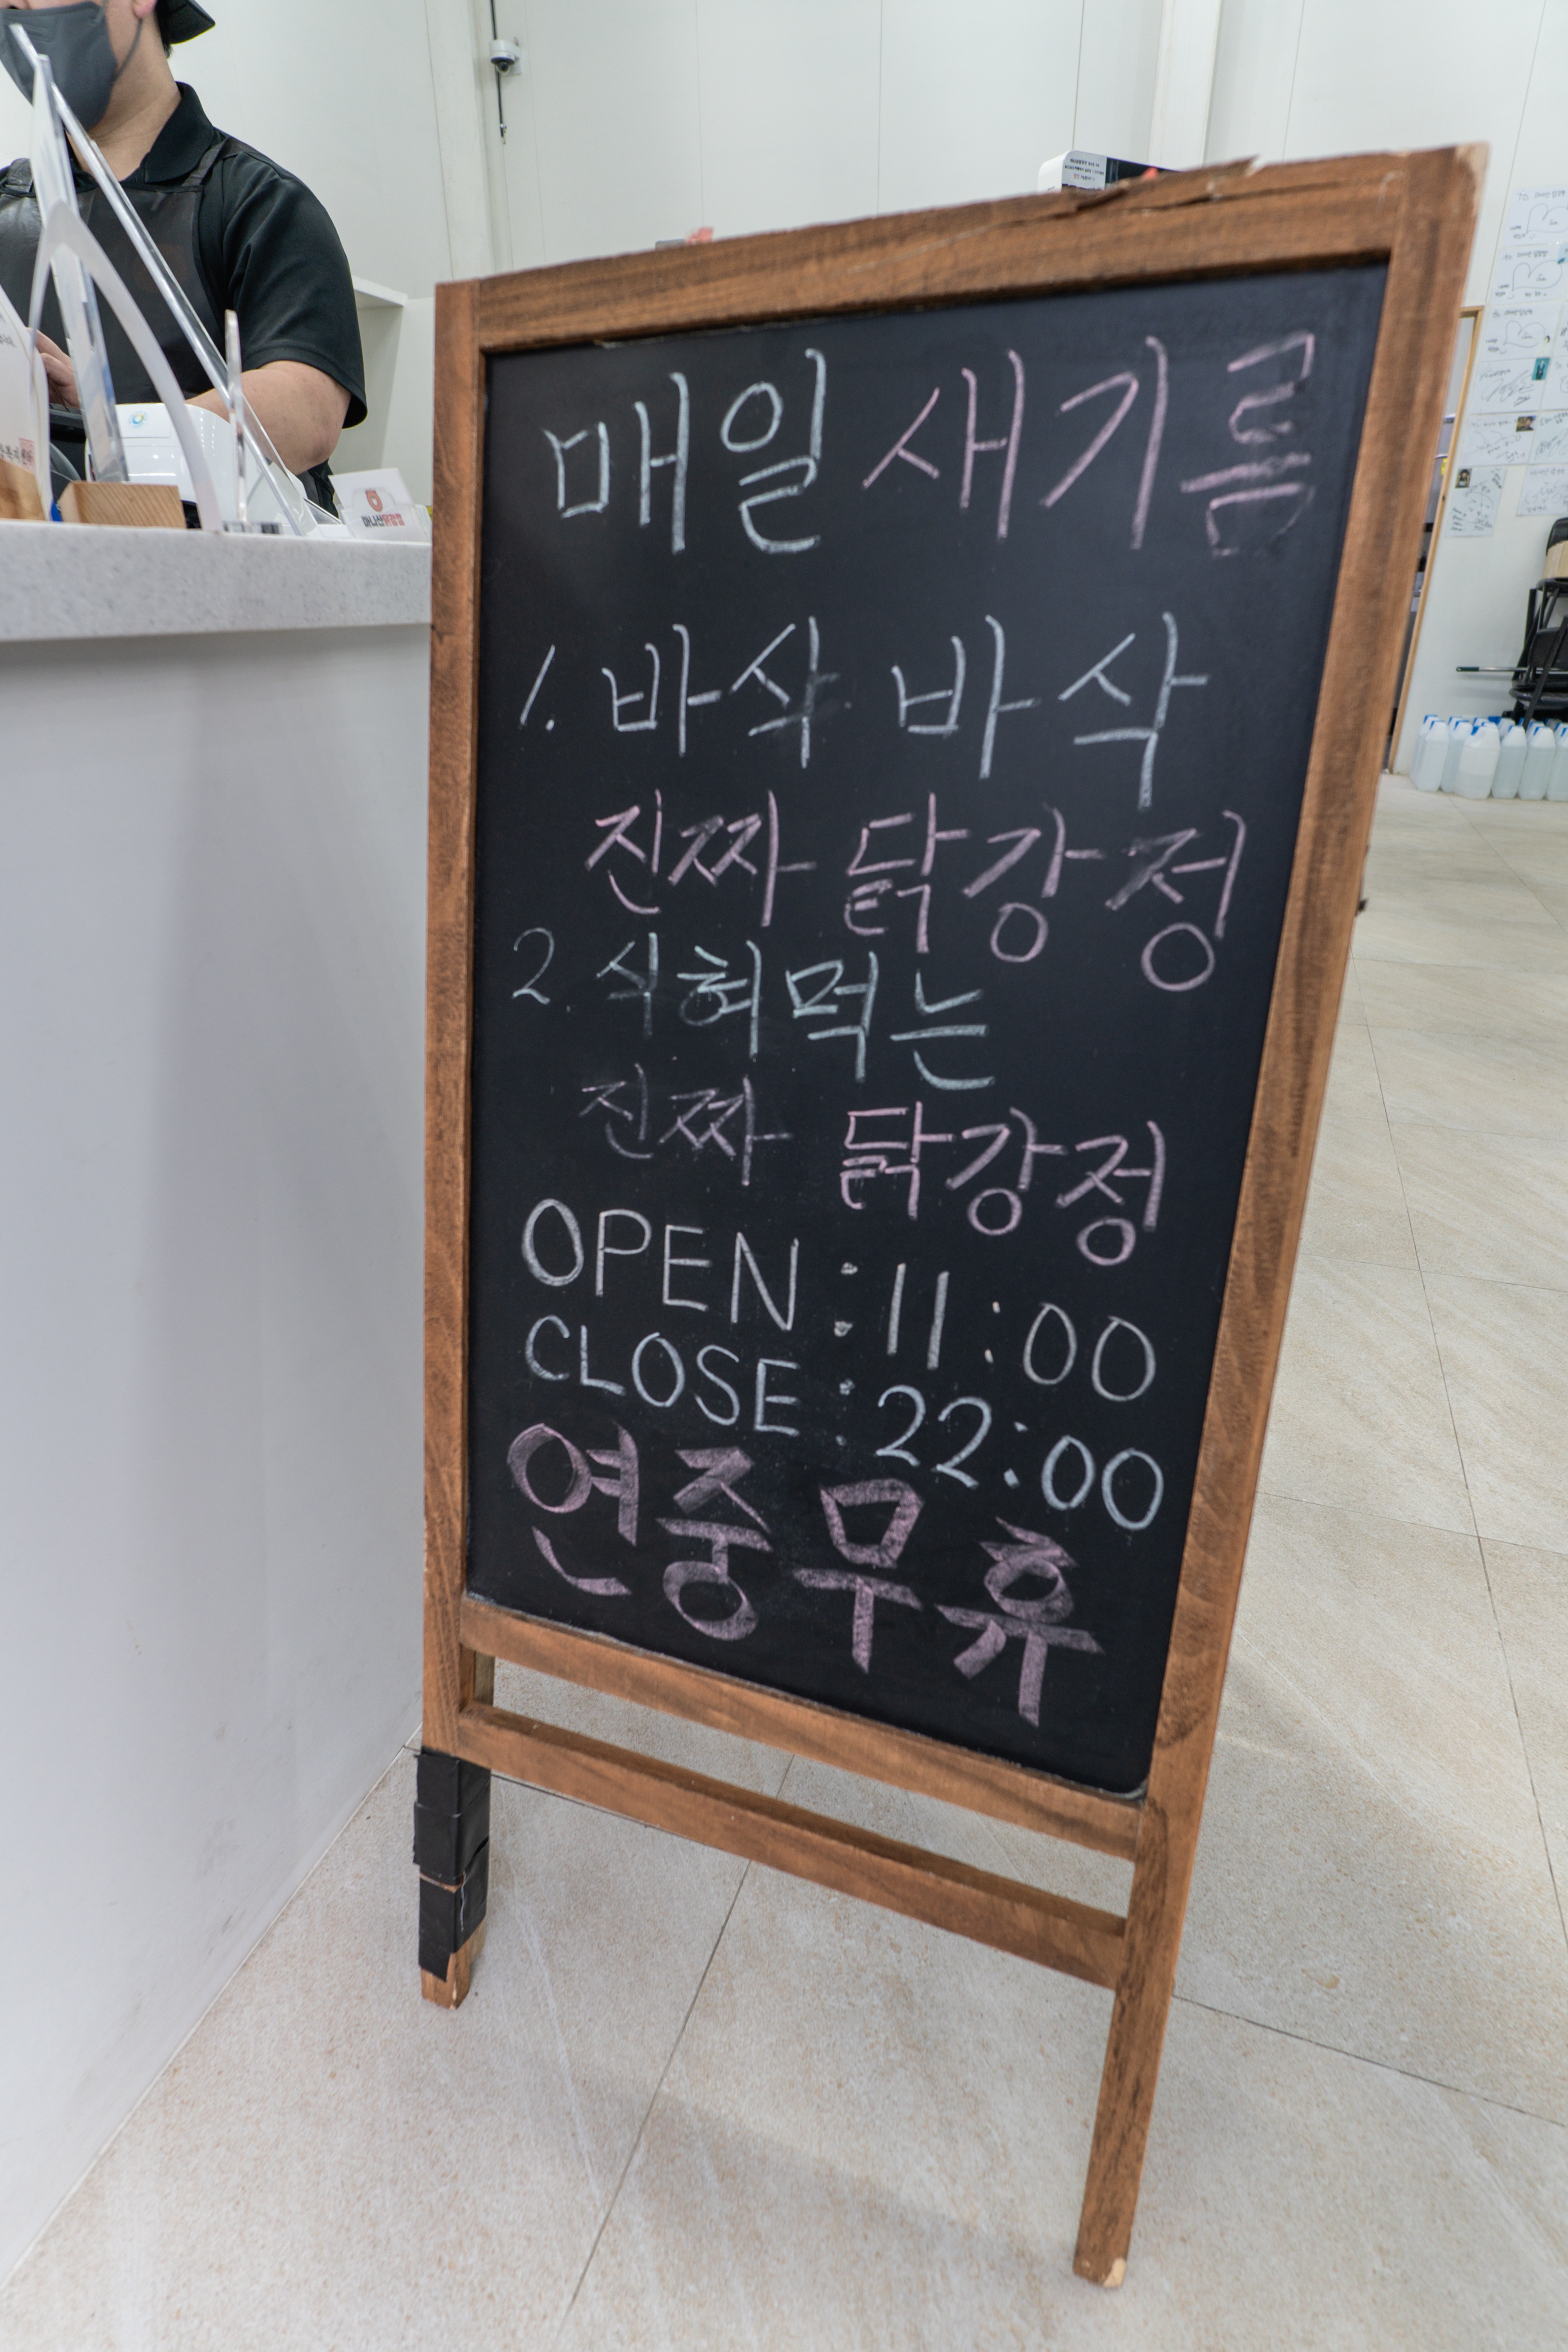 매일 새기름
1. 바삭 바삭
진짜 닭강정
2. 식혀먹는
진짜 닭강정
OPEN : 11:00
CLOSE : 22:00
연중무휴